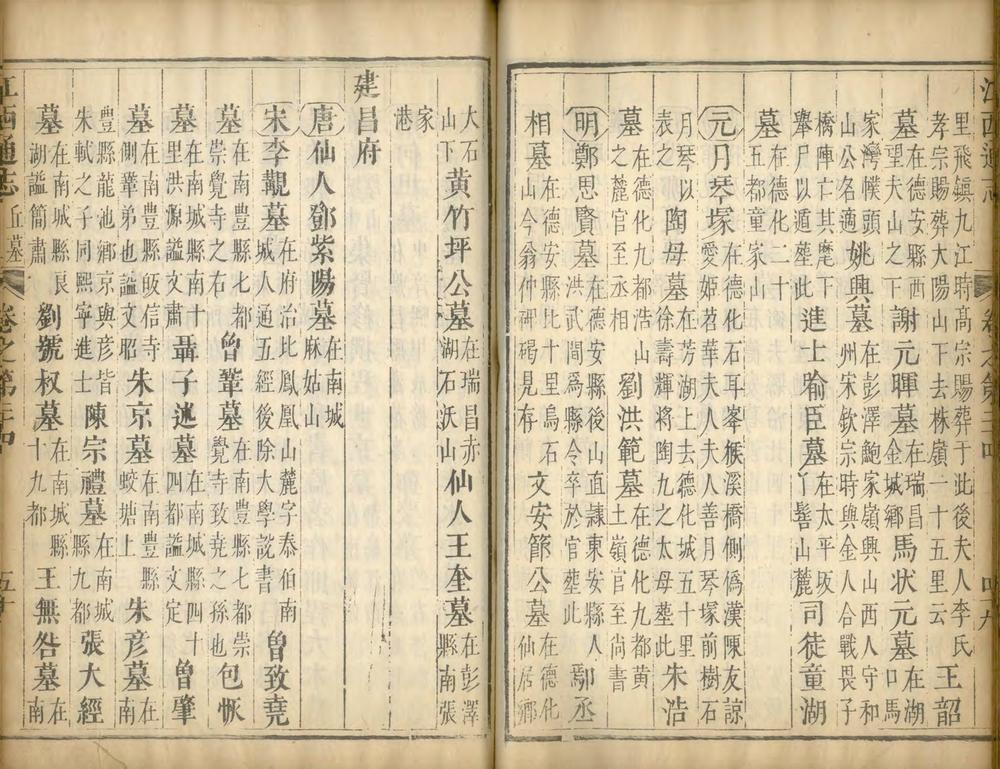 江西通志
里飛鎮九江時髙宗賜葬于此後夫人李氏孝宗賜葬大陽山下去株嶺一十五里云王韶
墓在德安縣西望夫山之下謝元暉墓在瑞昌金城鄉馬狀元墓在湖口馬
家灣幞頭山公名適姚興墓在彭澤鮑家嶺興山西人守和州宋欽宗時與金人合戰畏子
橋陣亡其麾舉尸以遁塟此進士喻臣墓在太平坂髻山麓司徒童湖
墓在德化二十五都童家山
元月琴塚在德化石耳峯猴溪橋側僞漢陳友諒愛姬苕華夫人夫人善月琴塚前樹石
月琴以表之陶母墓在芳湖上去德化城五十里徐壽輝將陶九之太母塟此朱浩
墓在德化九都浩山之麓官至丞相劉洪範墓在德化九都黄土嶺官至尚書
明鄭思賢墓在德安縣後山直隷東安縣人洪武間爲縣令卒於官塟此鄢丞
相墓在德安縣北十里烏石山今翁仲碑碣見存文安節公墓在德化仙居鄉
大石山下黄竹坪公墓在瑞昌赤湖石沃山仙人王奎墓在彭澤縣南張
家港
建昌府
唐仙人鄧紫陽墓在南城麻姑山
宋李覯墓在府治北鳳凰山麓字泰伯南城人通五經後除大學説書曾致堯
墓在南豐縣七都崇覺寺之右曾鞏墓在南豐縣七都崇覺寺致堯之孫也包恢
墓在南城縣南十里洪源謚文肅聶子述墓在南城縣四十四都謚文定曾肇
墓在南豐縣皈信寺側鞏弟也謚文昭朱京墓在南豐縣蛟塘上朱彦墓在南
豐縣龍池鄉京與彦皆朱軾之子同熙寧進士陳宗禮墓在南城縣九都張大經
墓在南城縣長湖謚簡肅劉虢叔墓在南城縣十九都王無咎墓在南
江西通志丘墓卷之第三四五十